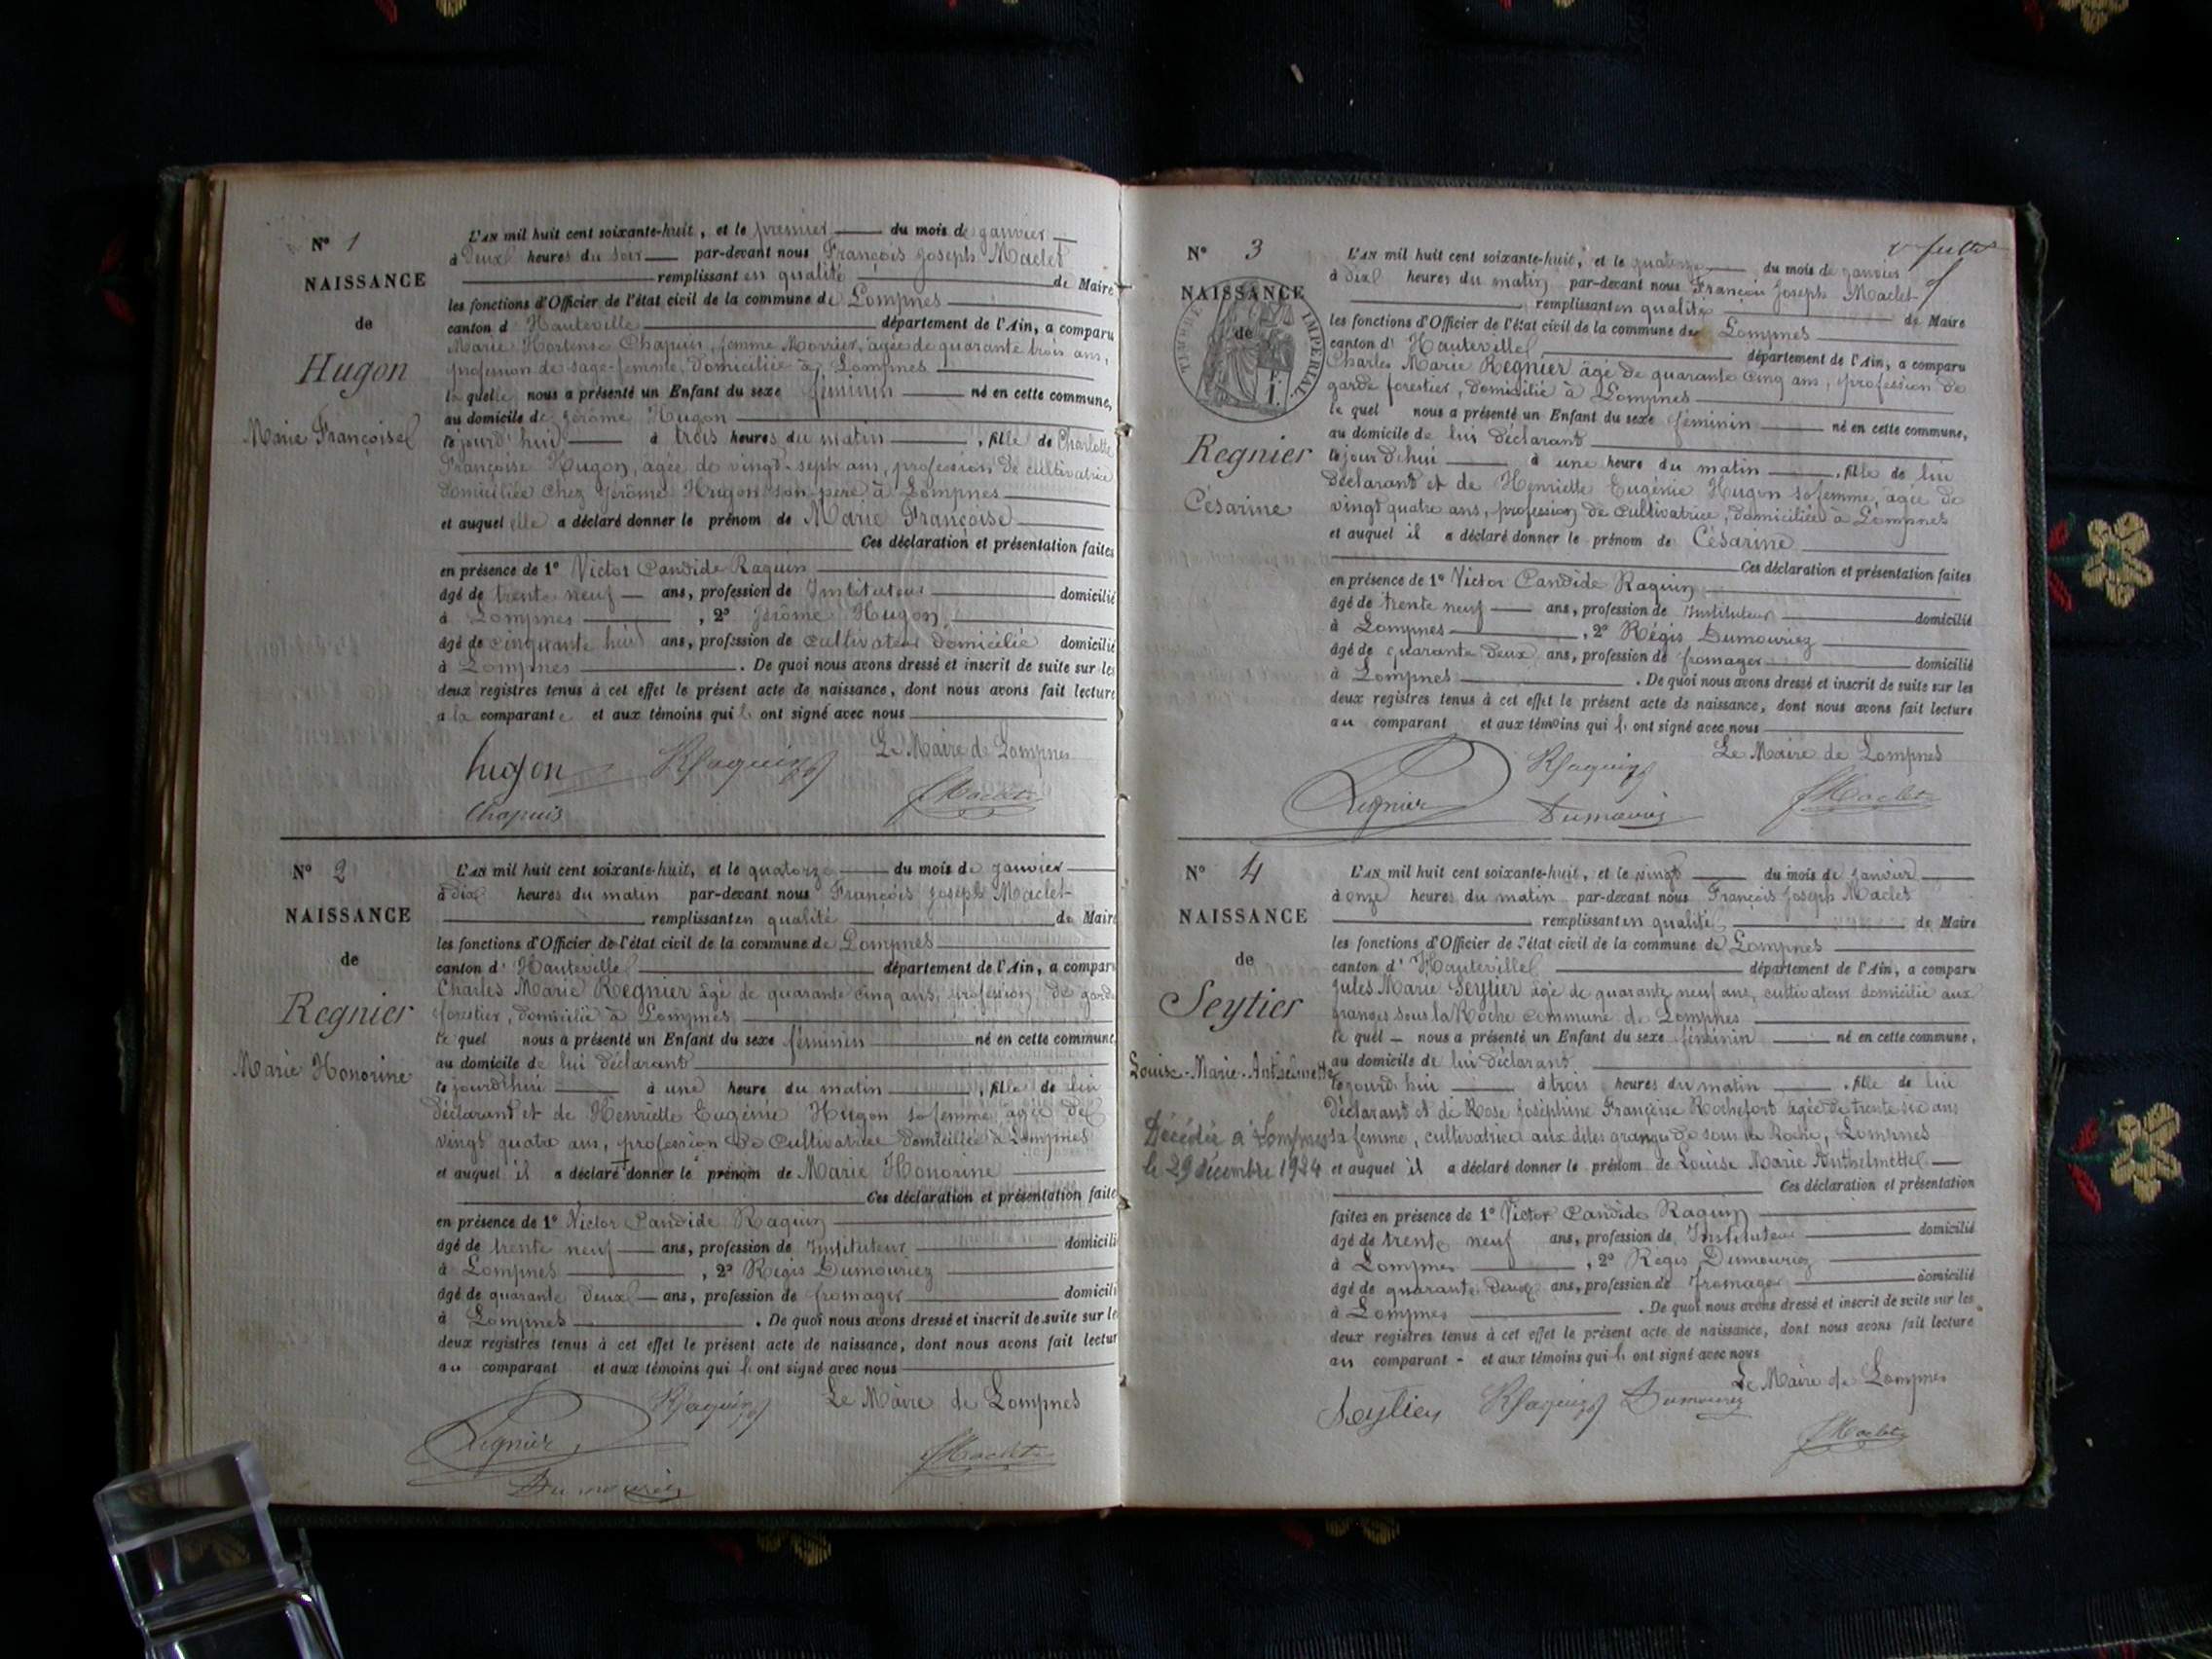 N° 1
NAISSANCE
de
Hugon
Marie Françoise
L'AN mil huit cent soixante-huit, et le premier du mois de janvier
à Deux heures du soir par-devant nous François Joseph Maclet
remplissant en qualité de Maire
les fonctions d'Officier de l'état civil de la commune de Lompnes
canton d' Hauteville département de l'Ain, a comparu
Marie Hortense Chapuis, femme Morrier, âgée de quarante trois ans,
profession de sage-femme, domiciliée à Lompnes
la quelle nous a présenté un Enfant du sexe féminin né en cette commune,
au domicile de Jérôme Hugon
cejourd'hui à trois heures du matin, fille de Charlotte
Françoise Hugon, âgée de vingt-sept ans, profession de cultivatrice
domiciliée chez Jérôme Hugon son père à Lompnes
et auquel elle a déclaré donner le prénom de Marie Françoise
Ces déclaration et présentation faites
en présence de 1° Victor Candide Raquin
âgé de trente neuf ans, profession de Instituteur domicilié
à Lompnes, 2° Jérôme Hugon,
âgé de cinquante huit ans, profession de cultivateur domicilié domicilié
à Lompnes. De quoi nous avons dressé et inscrit de suite sur les
deux registres tenus à cet effet le présent acte de naissance, dont nous avons fait lecture
a la comparante et aux témoins qui ont signé avec nous
Le Maire de Lompnes
hugon Raquin
Chapuis Maclet
N° 2
NAISSANCE
de
Regnier
Marie Honorine
L'AN mil huit cent soixante-huit, et le quatorze du mois de janvier
à dix heures du matin par-devant nous François Joseph Maclet
remplissant en qualité de Maire
les fonctions d'Officier de l'état civil de la commune de Lompnes
canton d' Hauteville département de l'Ain, a comparu
Charles Marie Regnier âgé de quarante cinq ans, profession de garde
forestier, domicilié à Lompnes
le quel nous a présenté un Enfant du sexe féminin né en cette commune,
au domicile de lui déclarant
cejourd'hui à une heure du matin, fille de lui
déclarant et de Henriette Eugénie Hugon sa femme, âgée de
vingt quatre ans, profession de cultivatrice domiciliée à Lompnes
et auquel il a déclaré donner le prénom de Marie Honorine
Ces déclaration et présentation faite
en présence de 1° Victor Candide Raquin
âgé de trente neuf ans, profession de Instituteur domicili
à Lompnes, 2° Régis Dumouriez
âgé de quarante deux ans, profession de fromager domicili
à Lompnes. De quoi nous avons dressé et inscrit de suite sur le
deux registres tenus à cet effet le présent acte de naissance, dont nous avons fait lectur
au comparant et aux témoins qui ont signé avec nous
Le Maire de Lompnes
Regnier Raquin
Dumouriez Maclet
N° 3
NAISSANCE
de
TIMBRE IMPERIAL
Regnier
Césarine
L'AN mil huit cent soixante-huit, et le quatorze du mois de janvier
à dix heures du matin par-devant nous François Joseph Maclet
remplissant en qualité de Maire
les fonctions d'Officier de l'état civil de la commune de Lompnes
canton d' Hauteville département de l'Ain, a comparu
Charles Marie Regnier âgé de quarante cinq ans, profession de
garde forestier, domicilié à Lompnes
le quel nous a présenté un Enfant du sexe féminin né en cette commune,
au domicile de lui déclarant
cejourd'hui à une heure du matin, fille de lui
déclarant et de Henriette Eugénie Hugon sa femme, âgée de
vingt quatre ans, profession de cultivatrice, domiciliée à Lompnes
et auquel il a déclaré donner le prénom de Césarine
Ces déclaration et présentation faites
en présence de 1° Victor Candide Raquin
âgé de trente neuf ans, profession de Instituteur domicilié
à Lompnes, 2° Régis Dumouriez
âgé de quarante deux ans, profession de fromager domicilié
à Lompnes. De quoi nous avons dressé et inscrit de suite sur les
deux registres tenus à cet effet le présent acte de naissance, dont nous avons fait lecture
au comparant et aux témoins qui ont signé avec nous
Le Maire de Lompnes
Regnier Raquin
Dumouriez Maclet
N° 4
NAISSANCE
de
Seytier
Louise-Marie-Anthelmette
Décédée à Lompnes
le 29 décembre 1924
L'AN mil huit cent soixante-huit, et le vingt du mois de janvier
à onze heures du matin par-devant nous François Joseph Maclet
remplissant en qualité de Maire
les fonctions d'Officier de l'état civil de la commune de Lompnes
canton d' Hauteville département de l'Ain, a comparu
Jules Marie Seytier âgé de quarante neuf ans, cultivateur domicilié aux
granges sous la Roche commune de Lompnes
le quel nous a présenté un Enfant du sexe féminin né en cette commune,
au domicile de lui déclarant
cejourd'hui à trois heures du matin, fille de lui
déclarant et de Rose Joséphine Françoise Rochefort âgée de trente six ans
sa femme, cultivatrice aux dites granges de sous la Roche, Lompnes
et auquel il a déclaré donner le prénom de Louise Marie Anthelmette
Ces déclaration et présentation
faites en présence de 1° Victor Candide Raquin
âgé de trente neuf ans, profession de Instituteur domicilié
à Lompnes, 2° Régis Dumouriez
âgé de quarante deux ans, profession de fromager domicilié
à Lompnes. De quoi nous avons dressé et inscrit de suite sur les
deux registres tenus à cet effet le présent acte de naissance, dont nous avons fait lecture
au comparant - et aux témoins qui ont signé avec nous
Le Maire de Lompnes
Seytier Raquin Dumouriez
Maclet